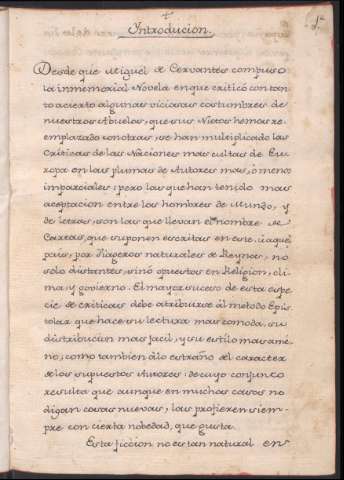 Introducion.
Desde que Miguel de Cervantes compuso
la inmemorial Novela en que criticó con tan-
to acierto algunas viciosas costumbres de
nuestros Abuelos, que sus Nietos hemos re-
emplazado con otras, se han multiplicado las
Criticas de las Naciones mas cultas de Eu-
ropa en las plumas de Autores mas, ó menos
imparciales; pero las que han tenido mas
aceptacion entre los hombres de Mundo, y
de letras, son las que llevan el nombre de
Cartas, que suponen escritas en este, ú aquel
pais, por Viageros naturales de Reynos, no
solo distantes, sinó opuestos en Religion, cli-
ma, y govierno. El mayor suceso de esta espe-
cie de criticas debe atribuirse al metodo Epis-
tolar que hace su lectura mas comoda, su
distribucion mas facil, y su estilo mas ame-
no; como tambien á lo estraño del caracter
de los supuestos Autores: de cuyo conjunto
resulta que aunque en muchos casos no
digan cosas nuevas, las profieren siem-
pre con cierta nobedad, que gusta.
Esta ficcion no es tan natural en